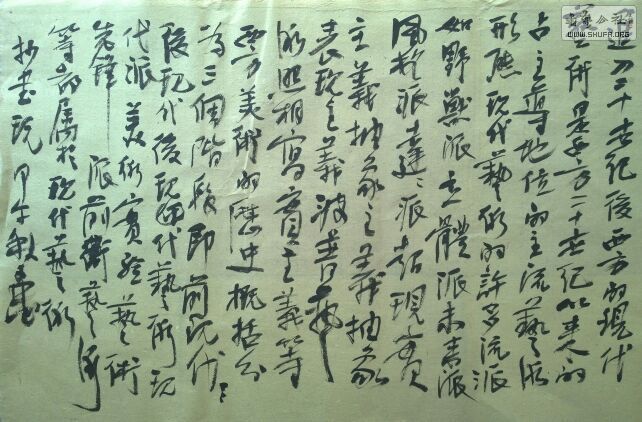 進入二十世紀後西方的現代
是西方二十世紀以來的
占主導地位的主流藝術
形態現代藝術的許多流派
如野獸派立體派未來派
風格派達達派超現實
主義抽象主義抽象
表現主義波普藝
術照相寫實主義等
西方美術的歷史概括分
為三個階段即前現代、
後現代藝術現
代派美術實驗藝術
先鋒派前衛藝術
等都屬於現代藝術
抄書玩甲午秋
书法公社
WWW.SHUFA.ORG